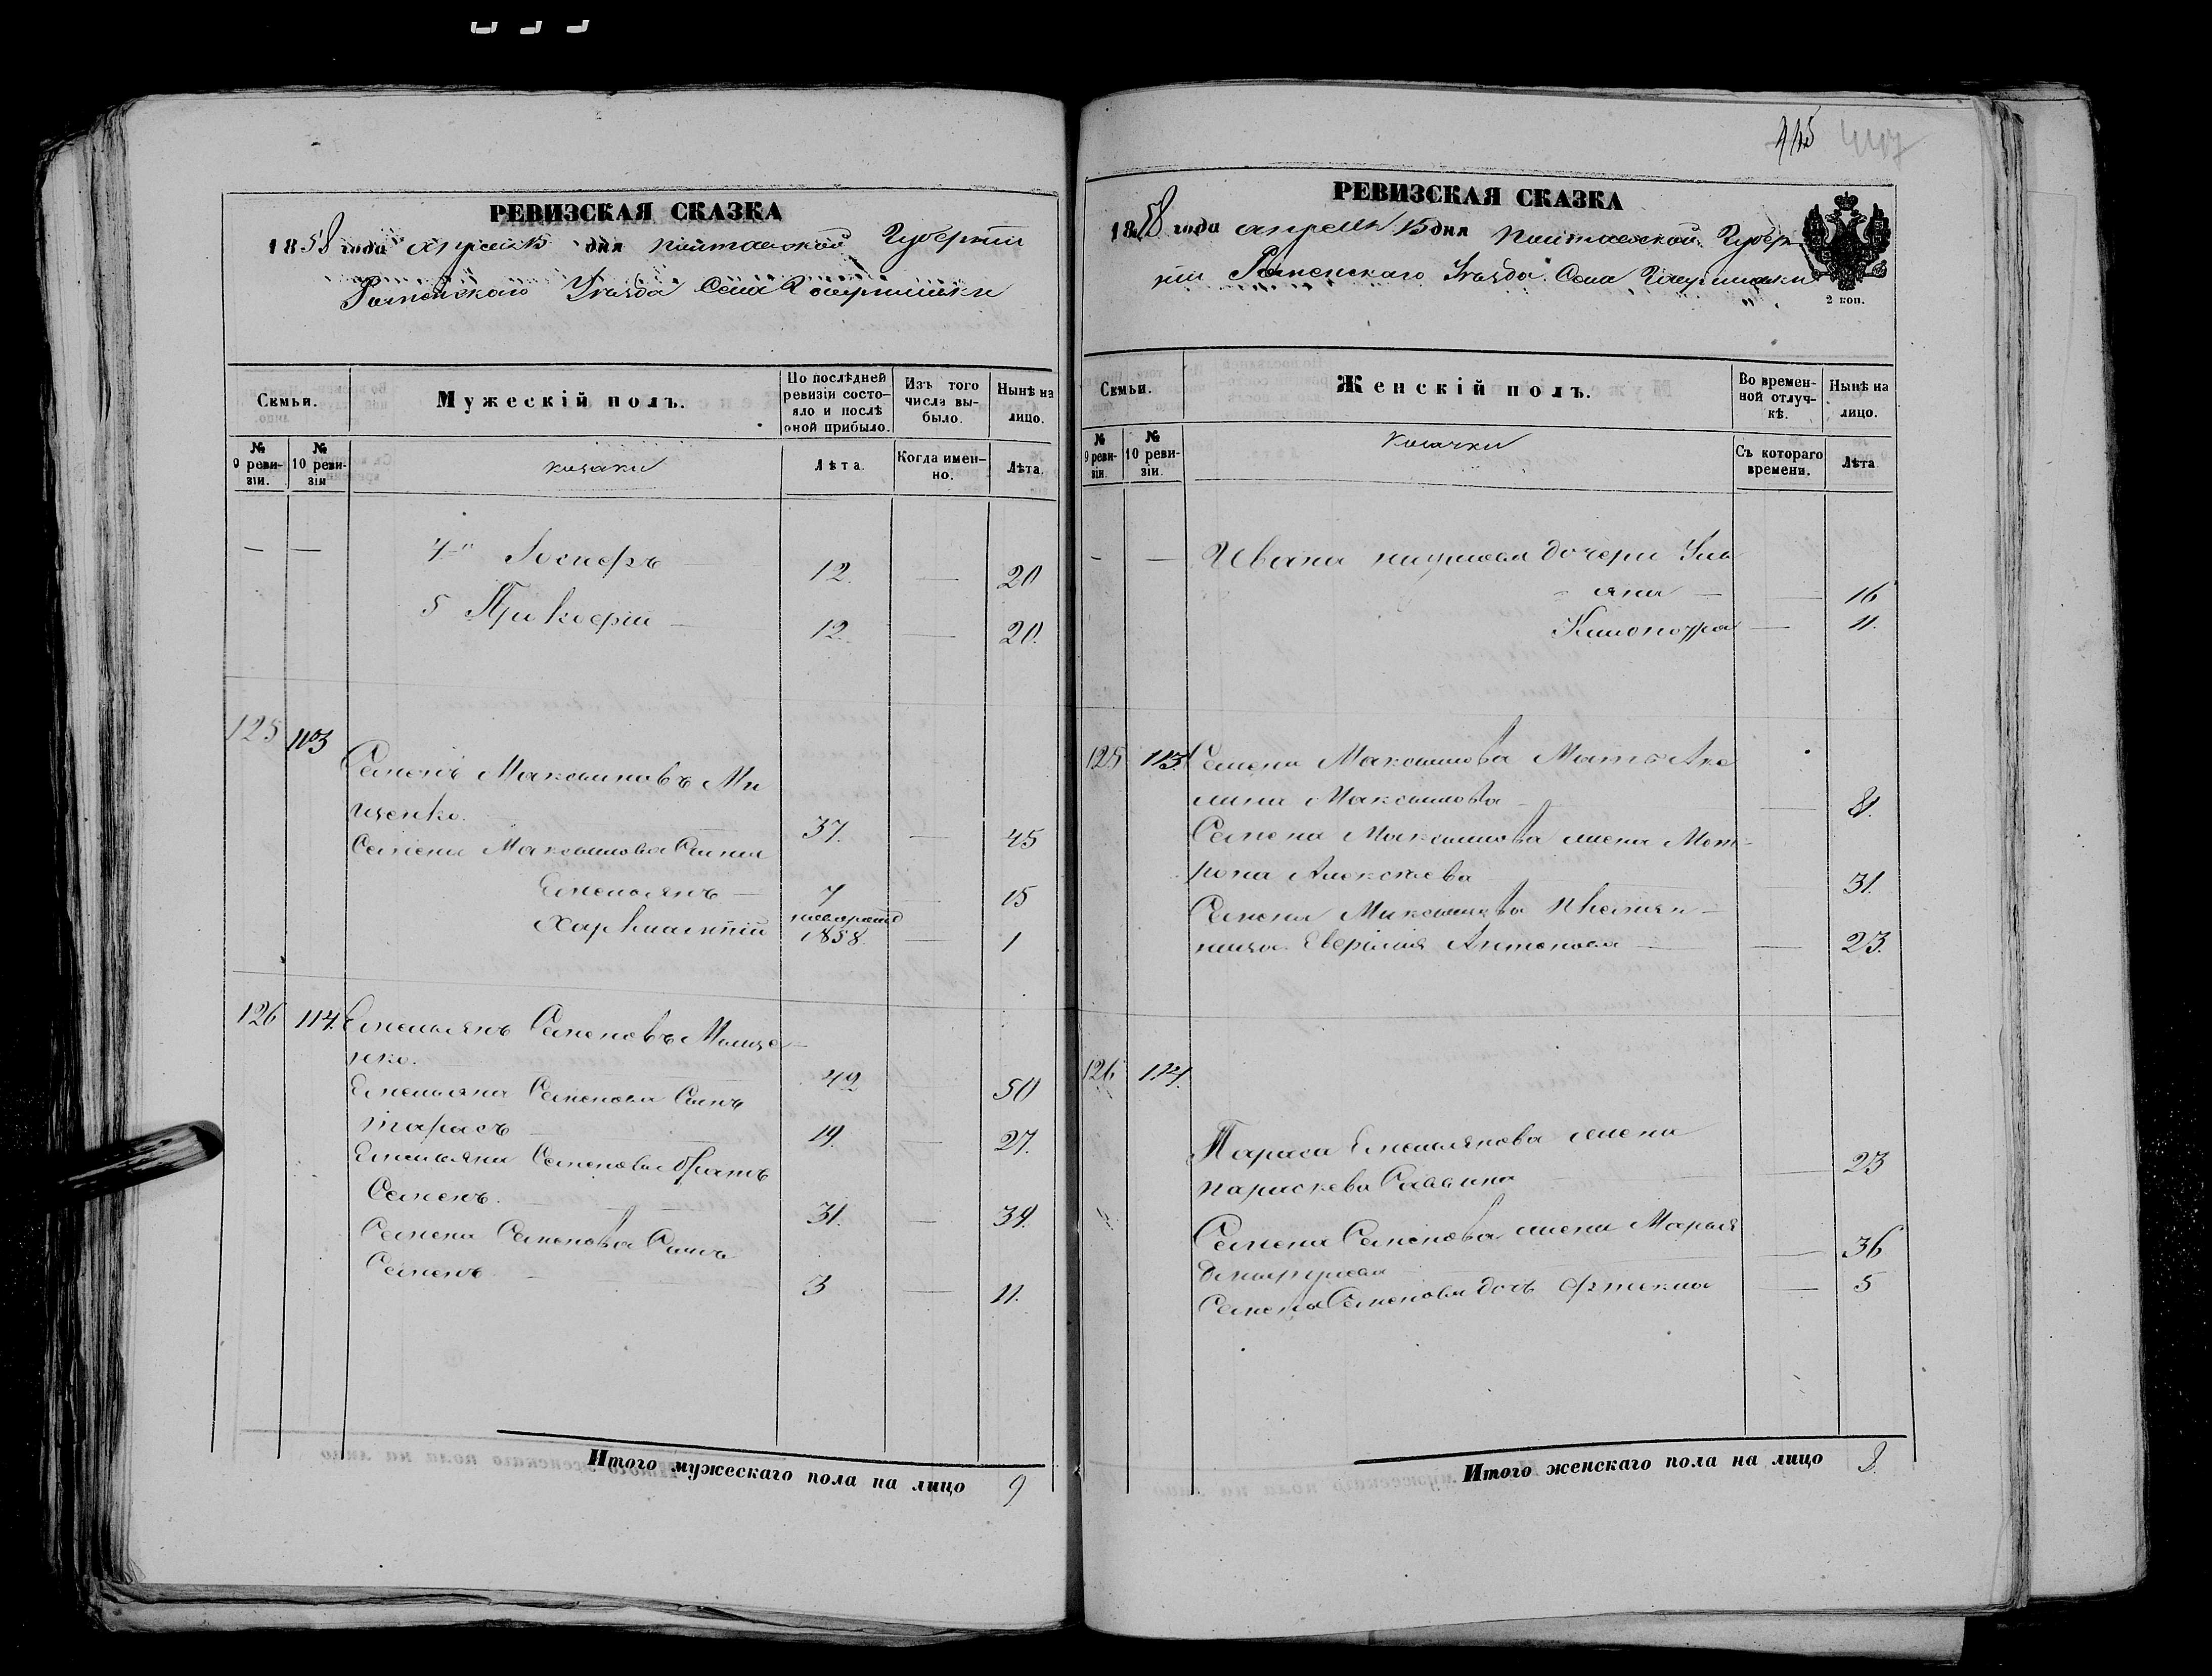 РЕВИЗСКАЯ СКАЗКА
1858 года апреля 15 дня Полтавской Губернии
Роменского Уезда Села Гаврилишки
Семьи.
Мужескій полъ.
По послѣдней ревизіи состояло и послѣ оной прибыло.
Изъ того числа выбыло.
Нынѣ на лицо.
№ 9 ревизіи.
№ 10 ревизіи
козаки
Лѣта.
Когда именно.
Лѣта.
— — 4й Іосифъ — 12. — 20
5 Прокофій — 12. — 20.
125 113
Семенъ Максимовъ Ми
щенко. 37. — 45
Семена Максимова Сыни
Емельянъ — 7 — 15
Харлампій новорожд 1858. — 1
126 114. Емельянъ Семеновъ Мище-
нко. 42 — 50
Емельяна Семенова Сынъ
Тарасъ — 19. — 27.
Емельяна Семенова братъ
Семенъ. 31. — 39.
Семена Семенова Сынъ
Семенъ 3 — 11.
Итого мужескаго пола на лицо 9
445 447
РЕВИЗСКАЯ СКАЗКА
1858 года апреля 15 дня Полтавской Губер
ніи Роменскаго Уезда Села
2 коп.
Семьи.
Женскій полъ.
Во временной отлучкѣ.
Нынѣ на лицо.
№ 9 ревизіи.
№ 10 ревизіи.
козачки
Съ котораго времени.
Лѣта
— — Ивана дочери Уль
яна — — 16
— 11.
125 113. Семена Максимова Мать Аку
лина Максимова — — 81.
Семена Максимова жена Мот-
рона Алексеева — 31.
Семена Максимова племян-
ница Евфимія Антонова — — 23.
126 114.
Тараса Емельянова жена
Параскева Саввина — 23
Семена Семенова жена Марья
Дмитриева — 36
Семена Семенова дочь Фекла — 5
Итого женскаго пола на лицо 8.